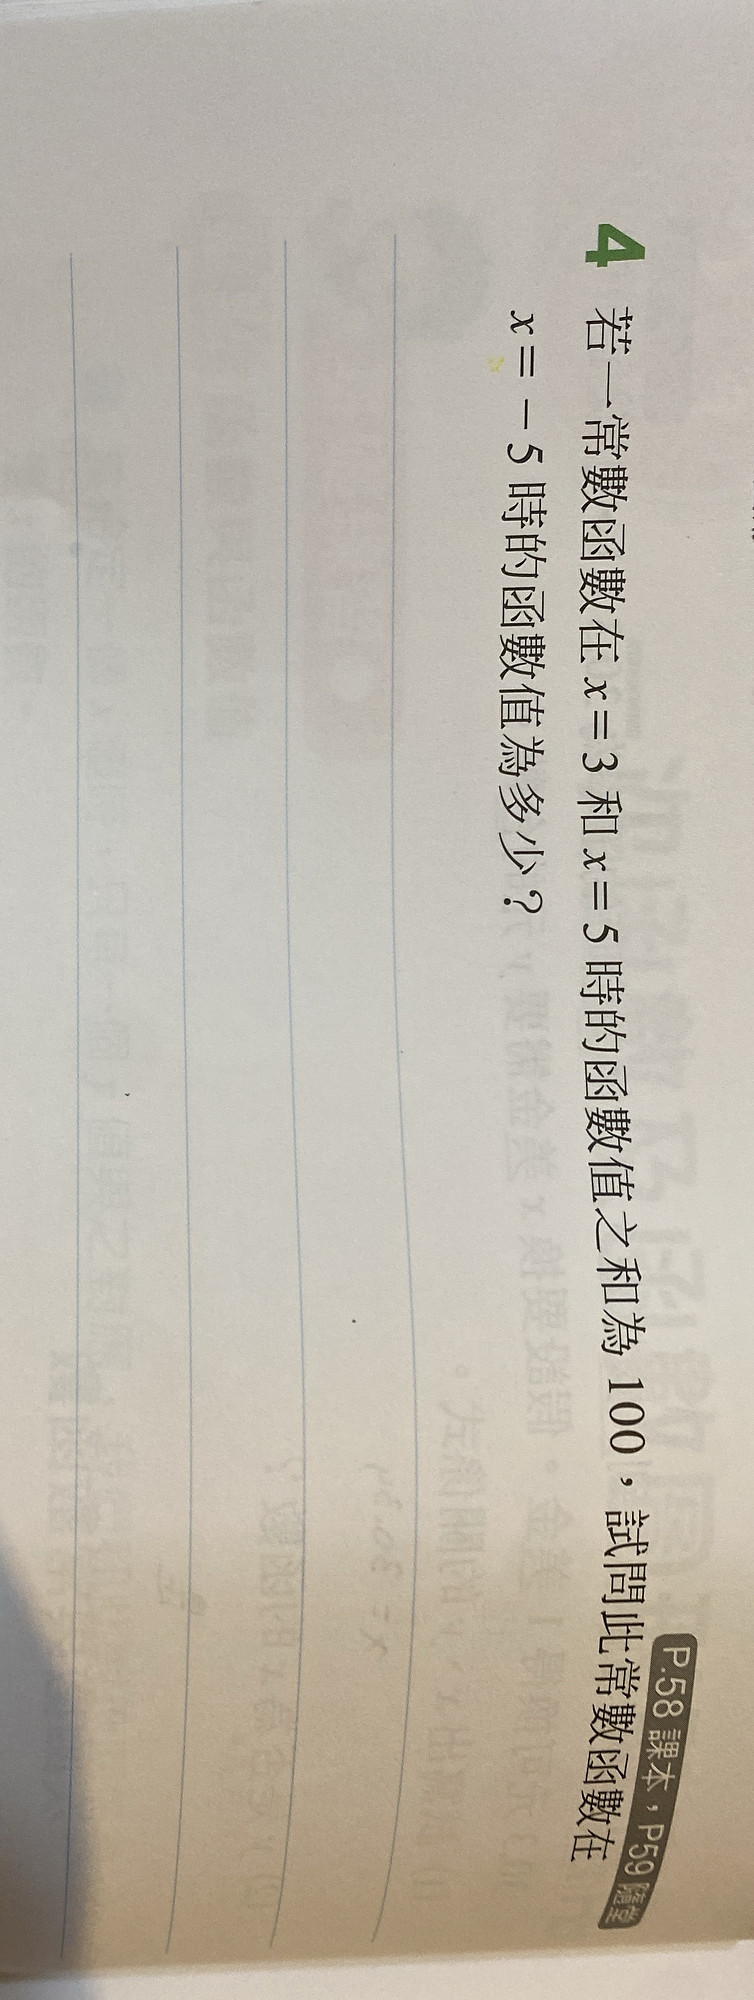 P.58 課本，P59 隨堂
4 若一常數函數在 x=3 和 x=5 時的函數值之和為 100，試問此常數函數在
x=－5 時的函數值為多少？